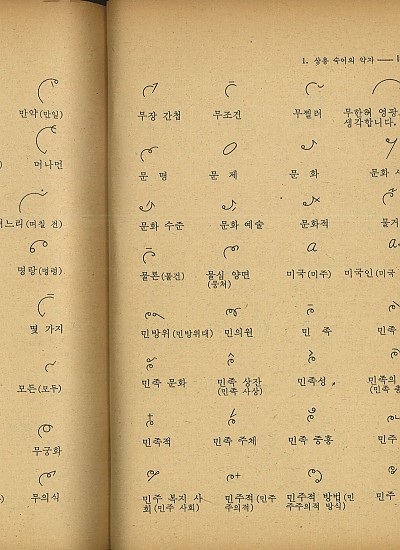 만약(만일)
머나먼
느리(며칠 전)
명랑(명령)
몇 가지
모든(모두)
무궁화
무의식
1. 상용 숙어의 약자
무장 간첩 무조건 무찔러 무한한 영광
생각합니다.
문 명 문 제 문 화 문화
문화 수준 문화 예술 문화적 물거
물론(물건) 물심 양면 미국(미주) 미국인(미국
(뭉쳐)
민방위(민방위대) 민의원 민 족 민족
민족 문화 민족 상잔 민족성 민족의
(민족 사상) (민족
민족적 민족 주체 민족 중흥 민주
민주 복지 사 민주적(민주 민주적 방법(민 민주
회(민주 사회) 주의적) 주주의적 방식)